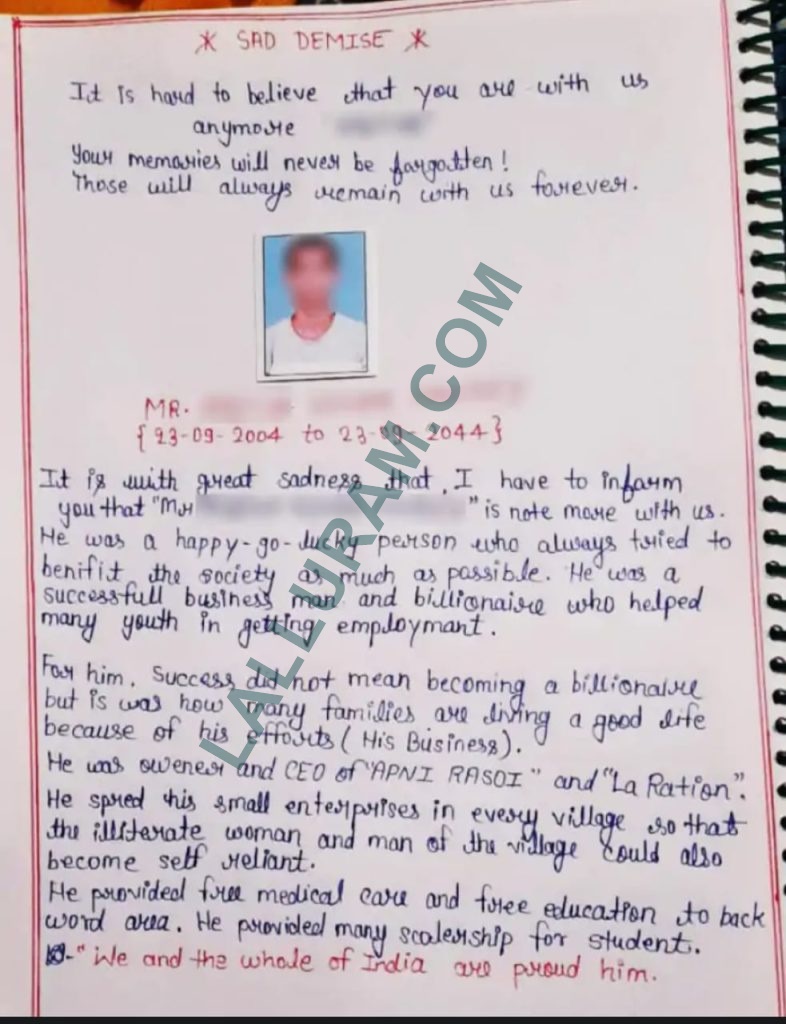 * SAD DEMISE *
It is hard to believe that you are with us
anymore
Your memories will never be forgotten!
Those will always remain with us forever.
MR.
{ 23-09-2004 to 23-09-2044 }
It is with great sadness that, I have to inform
you that "Mr " is note more with us.
He was a happy-go-lucky person who always tried to
benifit the society as much as possible. He was a
successfull business man and billionaire who helped
many youth in getting employmant.
For him, Success did not mean becoming a billionaire
but is was how many families are living a good life
because of his efforts ( His Business).
He was owener and CEO of "APNI RASOI" and "La Ration".
He spred his small enterprises in every village so that
the illiterate woman and man of the village could also
become self reliant.
He provided free medical care and free education to back
word area. He provided many scalership for student.
"We and the whole of India are proud him.
LALLURAM.COM